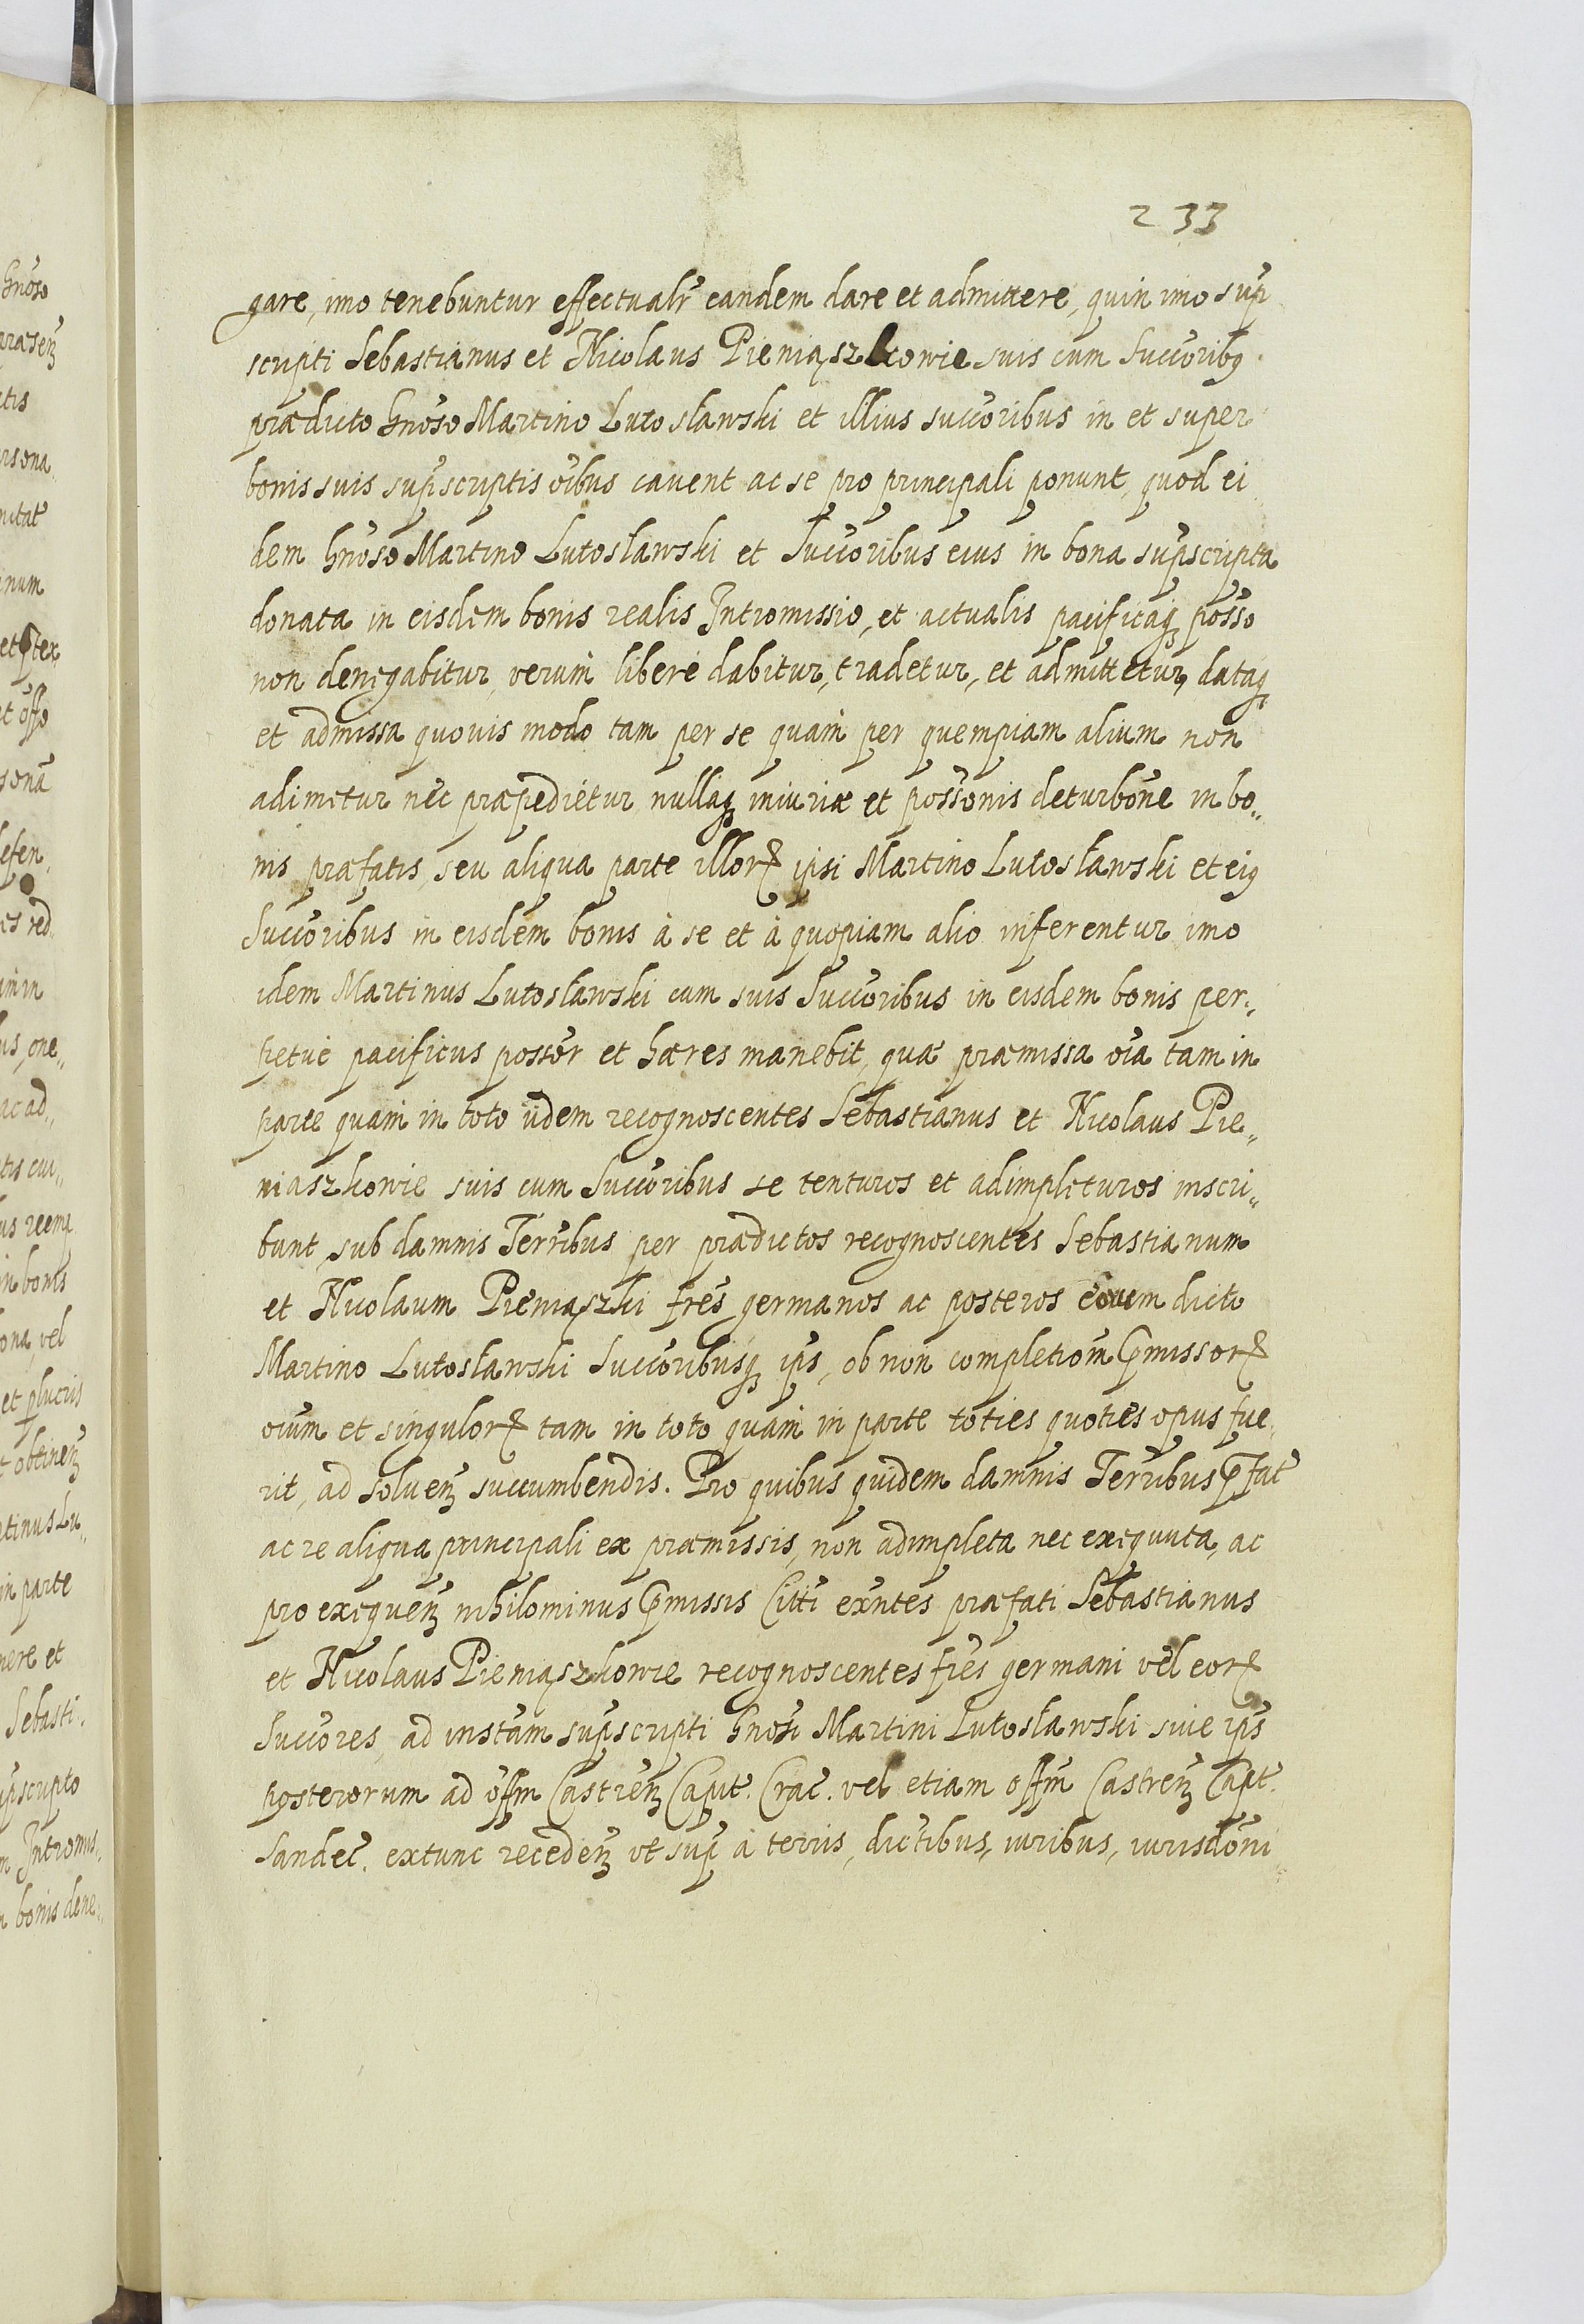 233
gare, imo tenebuntur effectualr̃ eandem dare et admittere, quin imo sup̃
scripti Sebastianus et Nicolaus Pieniąszkowie suis cum Succõribꝫ
prædicto Gnõso Martino Lutosławski et illius succõribus in et super
bonis suis sup̃scriptis oĩbus cavent ac se pro principali ponunt, quod ei
dem Gnõso Martino Lutosławski et Succõribus eius in bona sup̃scripta
donata in eisdem bonis realis Intromissio, et actualis pacificaqꝫ posšo
non denegabitur, verum libere dabitur, tradetur, et admittetur, dataqꝫ
et admissa quovis modo tam per se quam per quempiam alium non
adimetur nec præpedietur, nullaqꝫ iniuriæ et possõnis deturbõne in bo„
nis præfatis, seu aliqua parte illorꝝ ipsi Martino Lutosławski et eiꝫ
Succõribus in eisdem bonis à se et à quopiam alio inferentur imo
idem Martinus Lutosławski cum suis Succõribus in eisdem bonis per„
petue pacificus possõr et hæres manebit, quæ præmissa oĩa tam in
parte quam in toto iidem recognoscentes Sebastianus et Nicolaus Pie„
niaszkowie suis cum Succõribus se tenturos et adimpleturos inscri„
bunt, sub damnis Terr̃ibus per prædictos recognoscentes Sebastianum
et Nicolaum Pieniąszki fres̃ germanos ac posteros eorum dicto
Martino Lutosławski Succõribusqꝫ ips̃, ob non completiom̃ p̃missorꝝ
oĩum et singulorꝝ tam in toto quam in parte toties quoties opus fue
rit, ad solueñ succumbendis. Pro quibus quidem damnis Terr̃ibus p̃fat̃
ac re aliqua principali ex præmissis, non adimpleta nec exequuta, ac
pro exequeñ nihilominus p̃missis Citti exñtes præfati Sebastianus
et Nicolaus Pieniąszkowie recognoscentes fres̃ germani vel eorꝝ
Succõres, ad instãm sup̃scripti Gnõsi Martini Lutosławski siue ips̃
posterorum ad offm̃ Castreñ Capit. Crac̃. vel etiam offm̃ Castreñ Capt.
Sandec̃. extunc recedeñ vt sup̃ à terris, dictibus, iuribus, iurisdõni